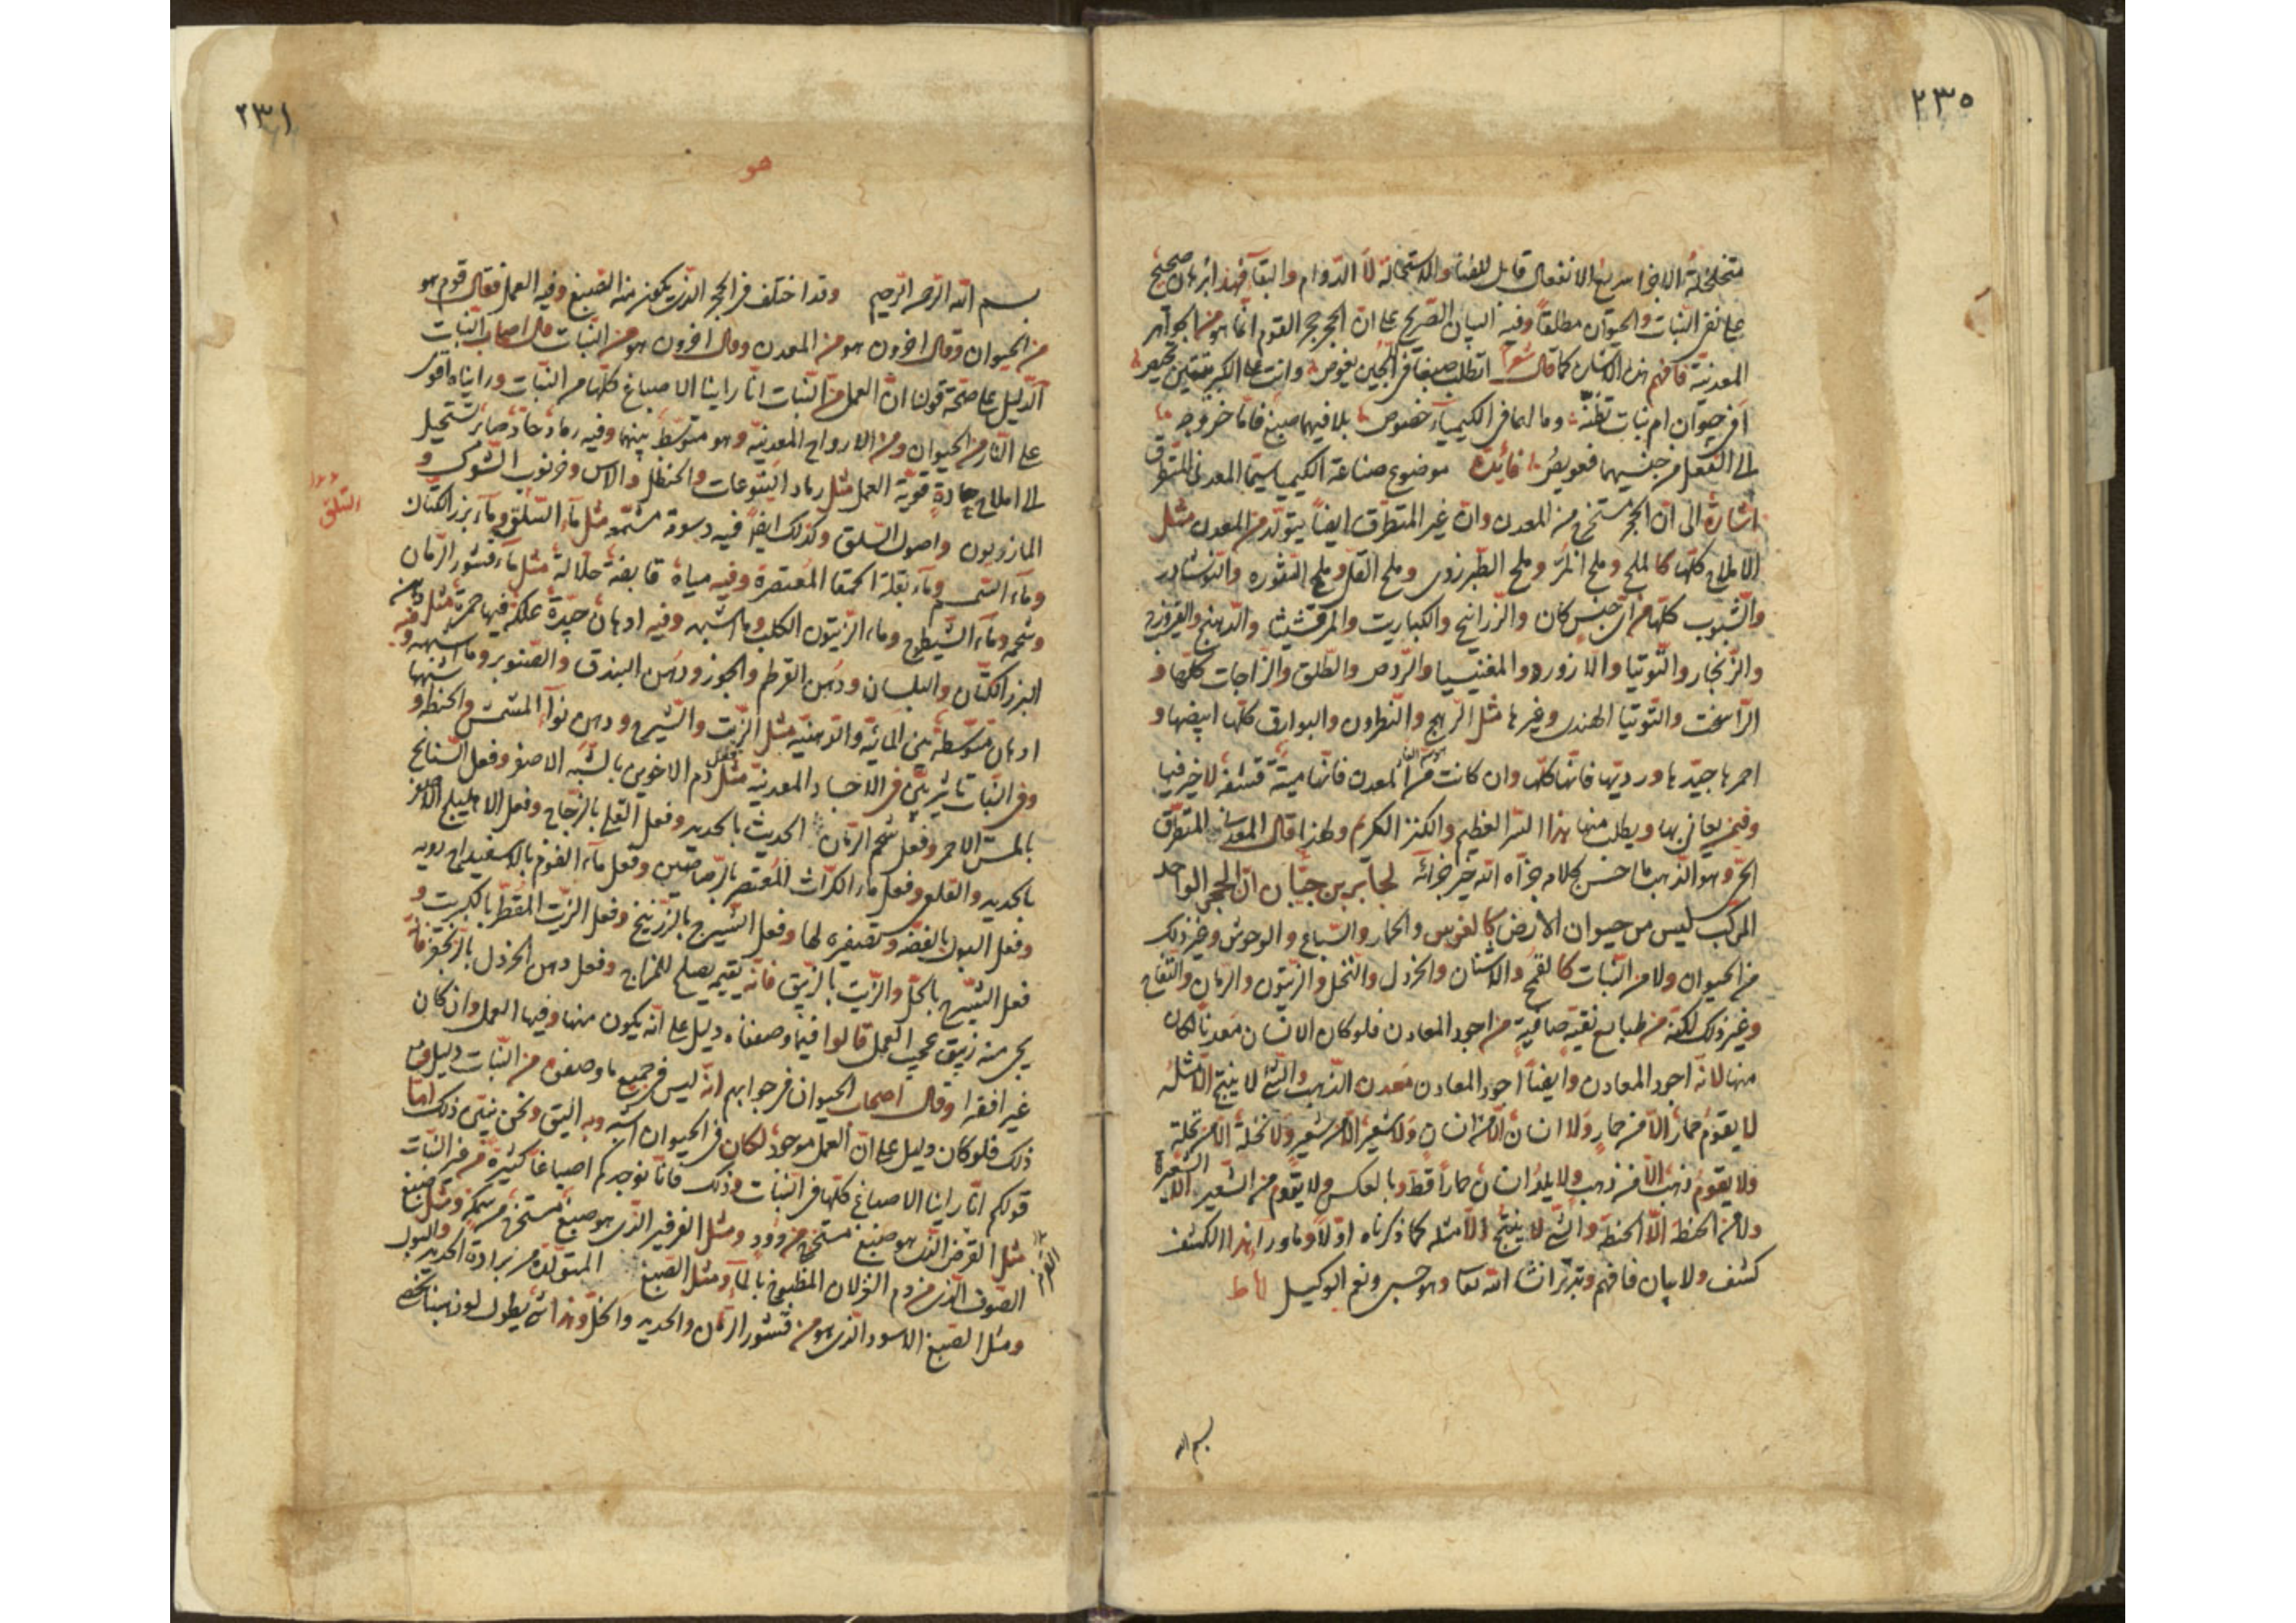 ٢٣٥
متخلخلة الاجزا سريع الانفعال قابل للفنا والاستحالة لا الدوام والبقا فهذا برهان صحيح
على نفى النبات والحيوان مطلقاً وفيه البيان الصريح على ان الحجر حجر القوم انما هو من الجواهر
المعدنية فافهم هذه الاشارة كما قال شعر اتطلب صبغا فى اللجين يغوص وانت على الكبريتتين حريص
افى حيوان ام نبات تظنه وما لهما فى الكيمياء خصوص بلا فيهما صبغ فاما خروجه
الى الفعل من جنسيهما فعويص فائدة موضوع صناعة الكيميا سيما المعدنى المتطرق
اشارة الى ان الحجر مستخرج من المعدن وان غير المتطرق ايضاً يتولد من المعدن مثل
الاملاح كلها كالملح وملح المر وملح الطبرزدى وملح القلى وملح النقوره والنوشادر
والشبوب كلها من اى جنس كان والزرانيخ والكباريت والمرقشيثا والدهنج والفيروزج
والزنجار والتوتيا واللازورد والمغنيسيا والردص والطلق والزاجات كلها و
الراسخت والتوتيا الهندى وغيرها مثل الرهج والنطرون والبوارق كلها ابيضها و
احمرها جيدها ورديها فانها كلها وان كانت من المعدن فانها ميتة قشفة لا خير فيها
وفيمن يعانى بها ويطلب منها هذا السر العظيم والكنز الكريم ولهذا قال المعدنى المتطرق
الحى وهو الذهب ما احسن كلامه جزاه الله خير جزائه لجابر بن حيان ان الحجر الواحد
المركب ليس من حيوان الارض كالفرس والحمار والسباع والوحوش وغير ذلك
من الحيوان ولا من النبات كالقمح والاشنان والخردل والنخل والزيتون والرمان والتفاح
وغير ذلك لكنه من طبايع نقية صافية من اجود المعادن فلو كان الانسان معدنا لكان
منها لانه اجود المعادن وايضاً اجود المعادن معدن الذهب والشئ لا ينتج الا مثله
لا يقوم حمار الا من حمار ولا انسان الا من انسان ولا شعير الا من شعير ولا نخلة الا من نخلة
ولا يقوم ذهب الا من ذهب ولا يلد انسان حماراً قط وبالعكس ولا يقوم من الشعير الا الشعيرة
ولا من الحنطة الا الحنطة والشئ لا ينتج الا مثله كما ذكرناه اولاً وما ورا هذا الكشف
كشف ولا بيان فافهم وتدبر انشا الله تعا وهو حسبى ونعم الوكيل
بسم الله
٢٣١
هو
بسم الله الرحمن الرحيم وقد اختلف فى الحجر الذى يكون منه الصبغ وفيه العمل فقال قوم هو
من الحيوان وقال اخرون هو من المعدن وقال اخرون هو من النبات قال اصحاب النبات
الدليل على صحة قولنا ان العمل من النبات انا راينا الاصباغ كلها من النبات وراينا اقوى
على النار من الحيوان ومن الارواح المعدنية وهو متوسط بينهما وفيه رماد حاد صابر تستحيل
الى املاح حادة قوية العمل مثل رماد اليتوعات والحنظل والاس وخرنوب الشوك و
المازريون واصول السلق وكذلك ايضاً فيه دسومة مشمعة مثل ماء السلق وماء بزر الكتان
وماء السمسم وماء بقلة الحمقا المعتصرة وفيه مياه قابضة حلالة مثل ماء قشور الرمان
وشحمه وماء الشيطرج وماء الزيتون الكلب وما اشبه وفيه ادهان جيدة علكة فيها حمرة مثل دهن
البزر الكتان والبلسان ودهن القرطم والجوز ودهن البندق والصنوبر وما اشبهه وفيه
ادهان متوسطة بين المائية والدهنية مثل الزيت والشيرج ودهن نوا المشمش والحنطة و اشبهها
وفى النبات تاثير بين فى الاجساد المعدنية مثل فعل دم الاخوين بالشبه الاصفر وفعل السنابج
بالمس الاحمر وفعل شحم الرمان الحديث بالحديد وفعل القلى بالزجاج وفعل الاهليلج الاصفر
بالحديد والقلعى وفعل ماء الكراث المعتصر بالرصاصين وفعل ماء الفوم بالاسفيداج
وفعل البول بالفضه وتصفيره لها وفعل الشيرج بالزرنيخ وفعل الزيت المقطر بالكبريت و
فعل الشيرج بالخل والزيت بالزيبق فانه يقيمه يصلح للمزاج وفعل دهن الخردل بالزنجفر فانه
يجى منه زيبق عجيب العمل قالوا فيما وصفناه دليل على انه يكون منها وفيها العمل وان كان
غير افقها وقال اصحاب الحيوان فى جوابهم انه ليس فى جميع ما وصفتم من النبات دليل
ذلك فلو كان دليل على ان العمل موجود لكان فى الحيوان اشبه وبه اليق ونحن نبين ذلك اما
قولكم انا راينا الاصباغ كلها فى النبات وذلك فانا نوجدكم اصباغا كثيرة من غير النبات
مثل القرمز الذى هو صبغ مستخرج من دود ومثل الفرفير الذى هو صبغ مستخرج من سمكة ومثل صبغ
الصوف الذى من دم الغزلان المطبوخ بالماء ومثل الصبغ المتولد من برادة الحديد والبول
ومثل الصبغ الاسود الذى هو من قشور الرمان والحديد والخل وهذا شئ يطول
السلق